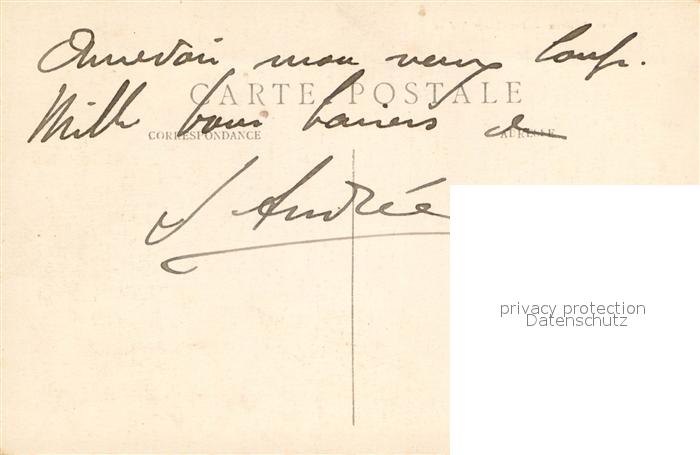 Aurevoir mon vieux loup.
CARTE POSTALE
Mille bons baisers de
CORRESPONDANCE
ADRESSE
Andrée
privacy protection
Datenschutz